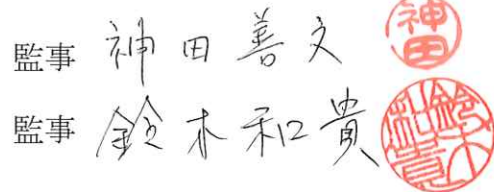 監事 神田善文 神田
監事 鈴木和貴 鈴木和貴